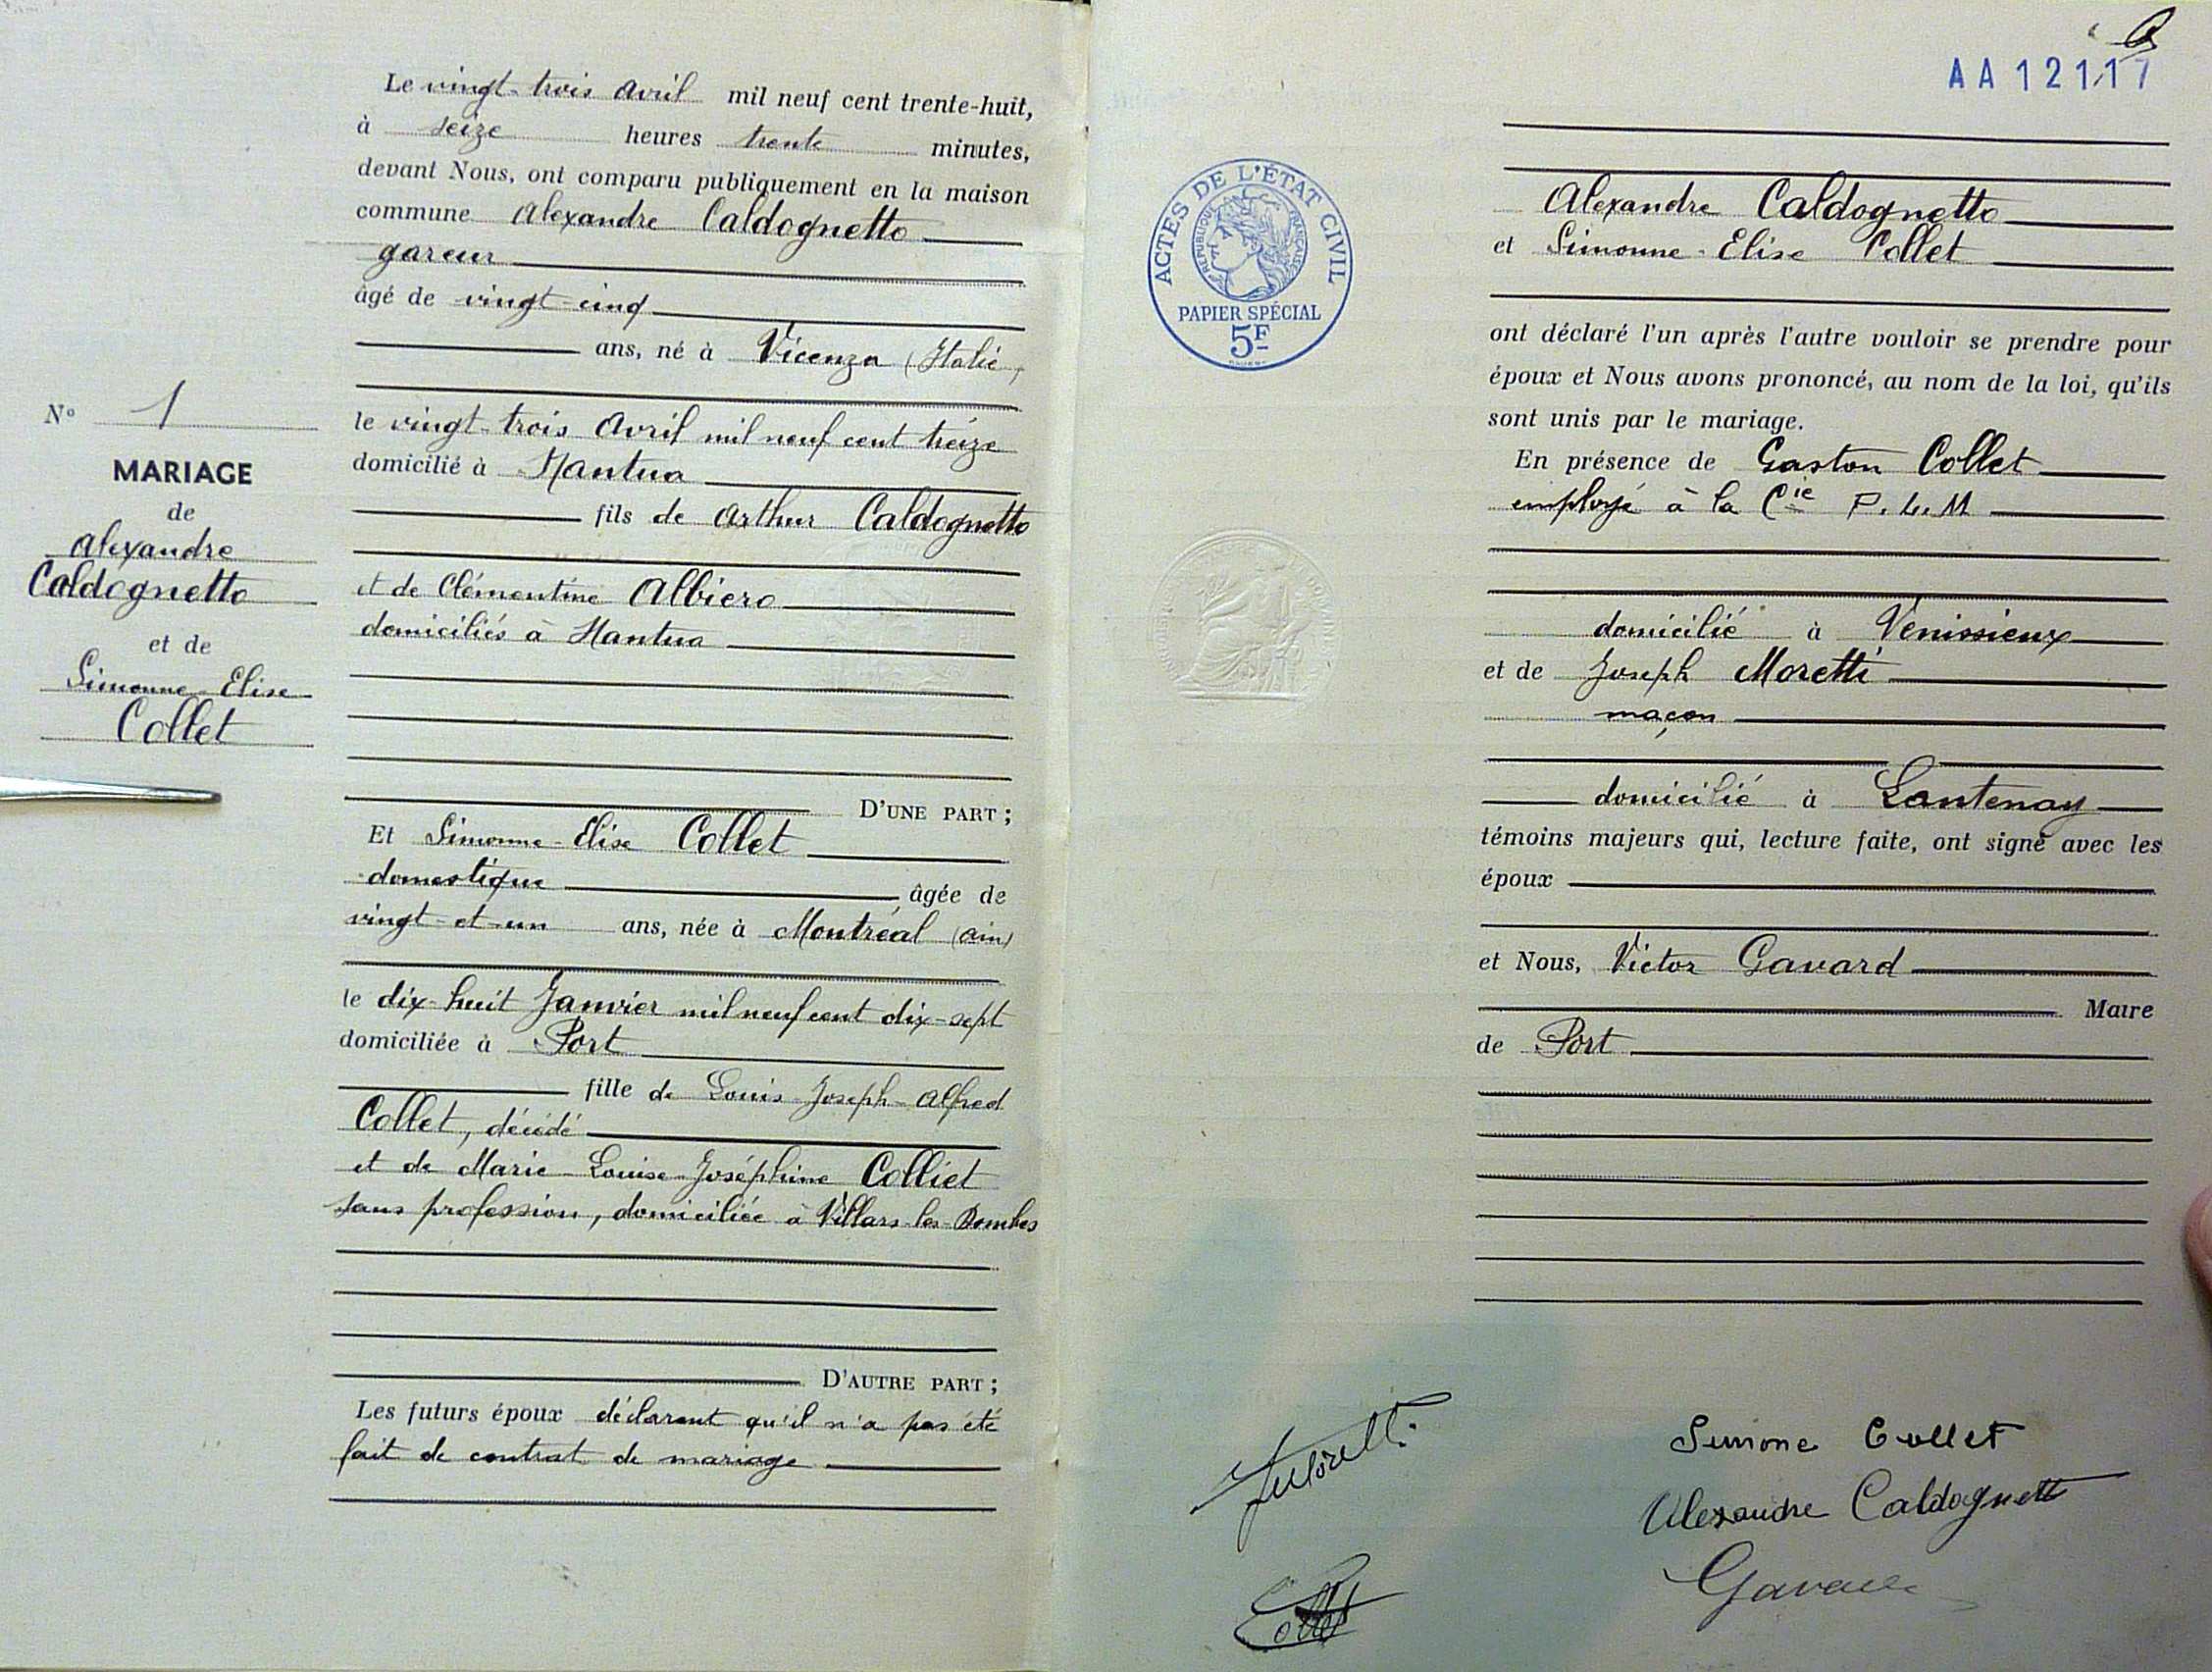 Le vingt-trois Avril mil neuf cent trente-huit,
à seize heures trente minutes,
devant Nous, ont comparu publiquement en la maison
commune Alexandre Caldognetto
gareur
âgé de vingt-cinq
ans, né à Vicenza (Italie)
le vingt-trois Avril mil neuf cent treize
domicilié à Nantua
fils de Arthur Caldognetto
et de Clémentine Albiero
domiciliés à Nantua
D'UNE PART ;
Et Simonne-Elise Collet
domestique âgée de
vingt-et-un ans, née à Montréal (Ain)
le dix-huit Janvier mil neuf cent dix-sept
domiciliée à Port
fille de Louis-Joseph-Alfred
Collet, décédé
et de Marie-Louise-Joséphine Colliet
sans profession, domiciliée à Villars-les-Dombes
D'AUTRE PART ;
Les futurs époux déclarent qu'il n'a pas été
fait de contrat de mariage
N° 1
MARIAGE
de
Alexandre
Caldognetto
et de
Simonne-Elise
Collet
AA12117
ACTES DE L'ÉTAT CIVIL
RÉPUBLIQUE FRANÇAISE
PAPIER SPÉCIAL
5F
Alexandre Caldognetto
et Simonne-Elise Collet
ont déclaré l'un après l'autre vouloir se prendre pour
époux et Nous avons prononcé, au nom de la loi, qu'ils
sont unis par le mariage.
En présence de Gaston Collet
employé à la Cie P.L.M
domicilié à Venissieux
et de Joseph Moretti
maçon
domicilié à Lantenay
témoins majeurs qui, lecture faite, ont signé avec les
époux
et Nous, Victor Gavard
Maire
de Port
Simone Collet
Alexandre Caldognetto
Collet